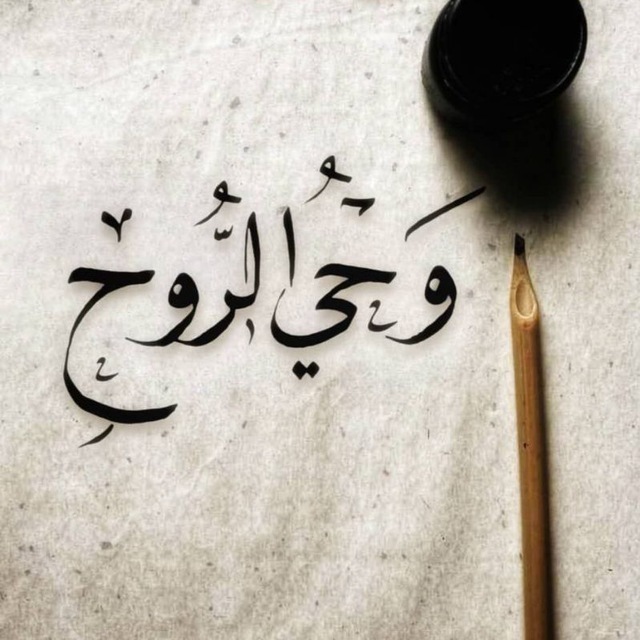 وَحْيُ الرُّوحِ